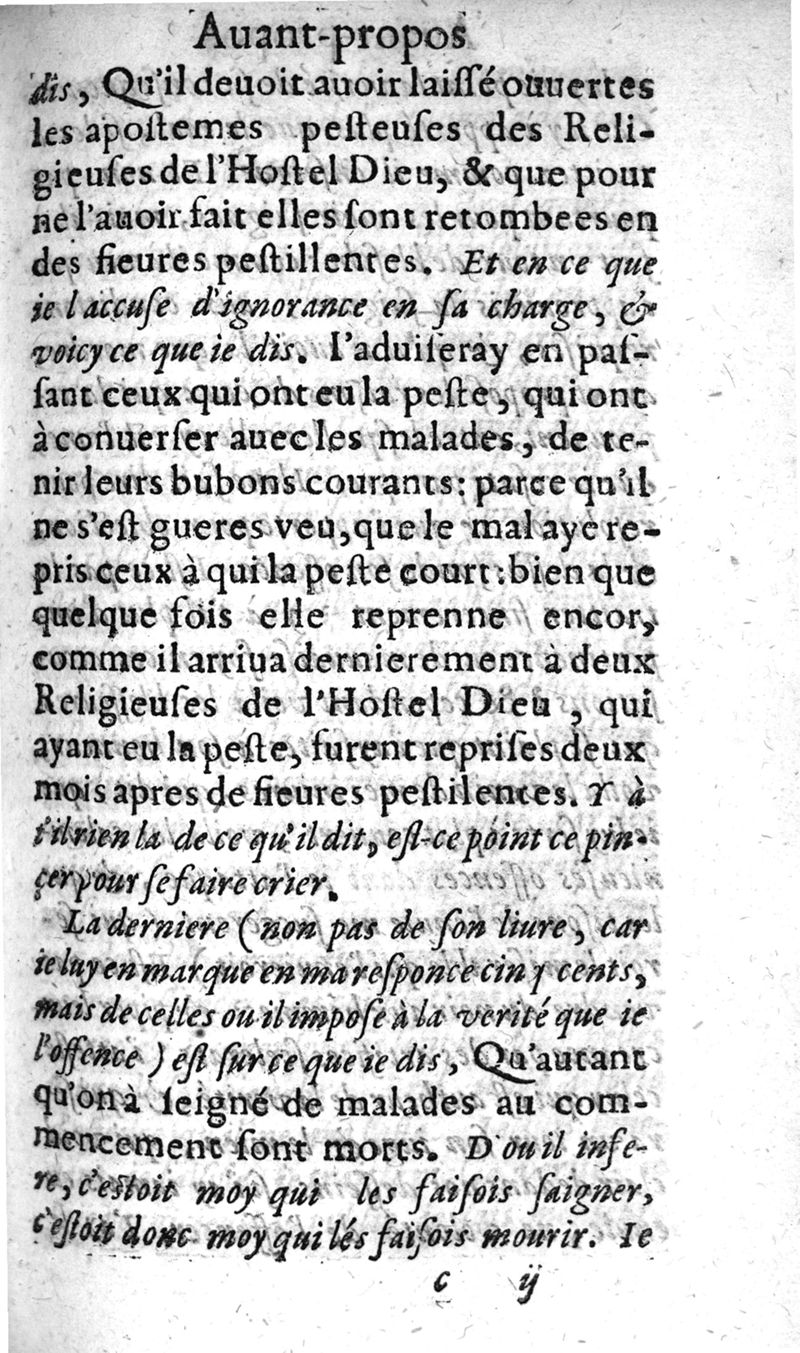 Auant-propos
dis, Qu'il deuoit auoir laiſſé ouuertes
les apoſtemes peſteuſes des Reli-
gieuſes de l'Hoſtel Dieu, & que pour
ne l'auoir fait elles ſont retombees en
des fieures peſtillentes. Et en ce que
ie l accuſe d'ignorance en ſa charge, &
voicy ce que ie dis. I'aduiſeray en paſ-
ſant ceux qui ont eu la peſte, qui ont
à conuerſer auec les malades, de te-
nir leurs bubons courants: parce qu'il
ne s'eſt gueres veu, que le mal aye re-
pris ceux à qui la peſte court: bien que
quelque fois elle reprenne encor,
comme il arriua dernierement à deux
Religieuſes de l'Hoſtel Dieu, qui
ayant eu la peſte, furent repriſes deux
mois apres de fieures peſtilentes. Y à
t'il rien la de ce qu'il dit, eſt-ce point ce pin-
çer pour ſe faire crier.
La derniere (non pas de ſon liure, car
ie luy en marque en ma reſponce cinq cents,
mais de celles ou il impoſe à la verité que ie
l'offence) eſt ſur ce que ie dis, Qu'autant
qu'on à ſeigné de malades au com-
mencement ſont morts. D'ou il infe-
re, c'eſtoit moy qui les faiſois ſaigner,
c'eſtoit donc moy qui lés faiſois mourir. Ie
c ij